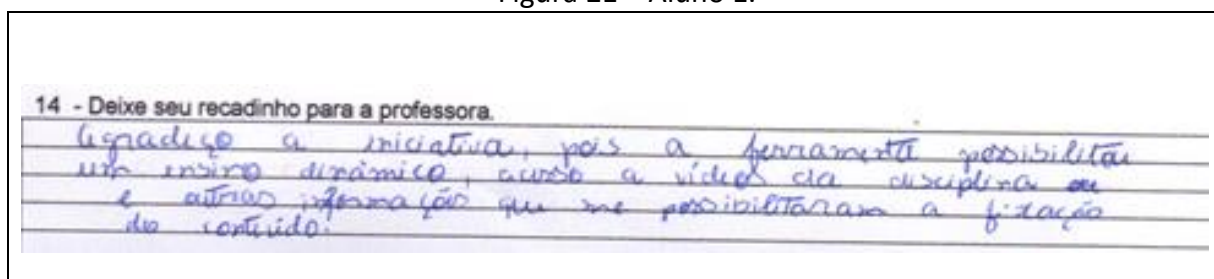 14 - Deixe seu recadinho para a professora.
Agradeço a iniciativa, pois a ferramenta possibilitou
um ensino dinâmico, acesso a vídeos da disciplina ou
e outras informação que me possibilitaram a fixação
do conteúdo.